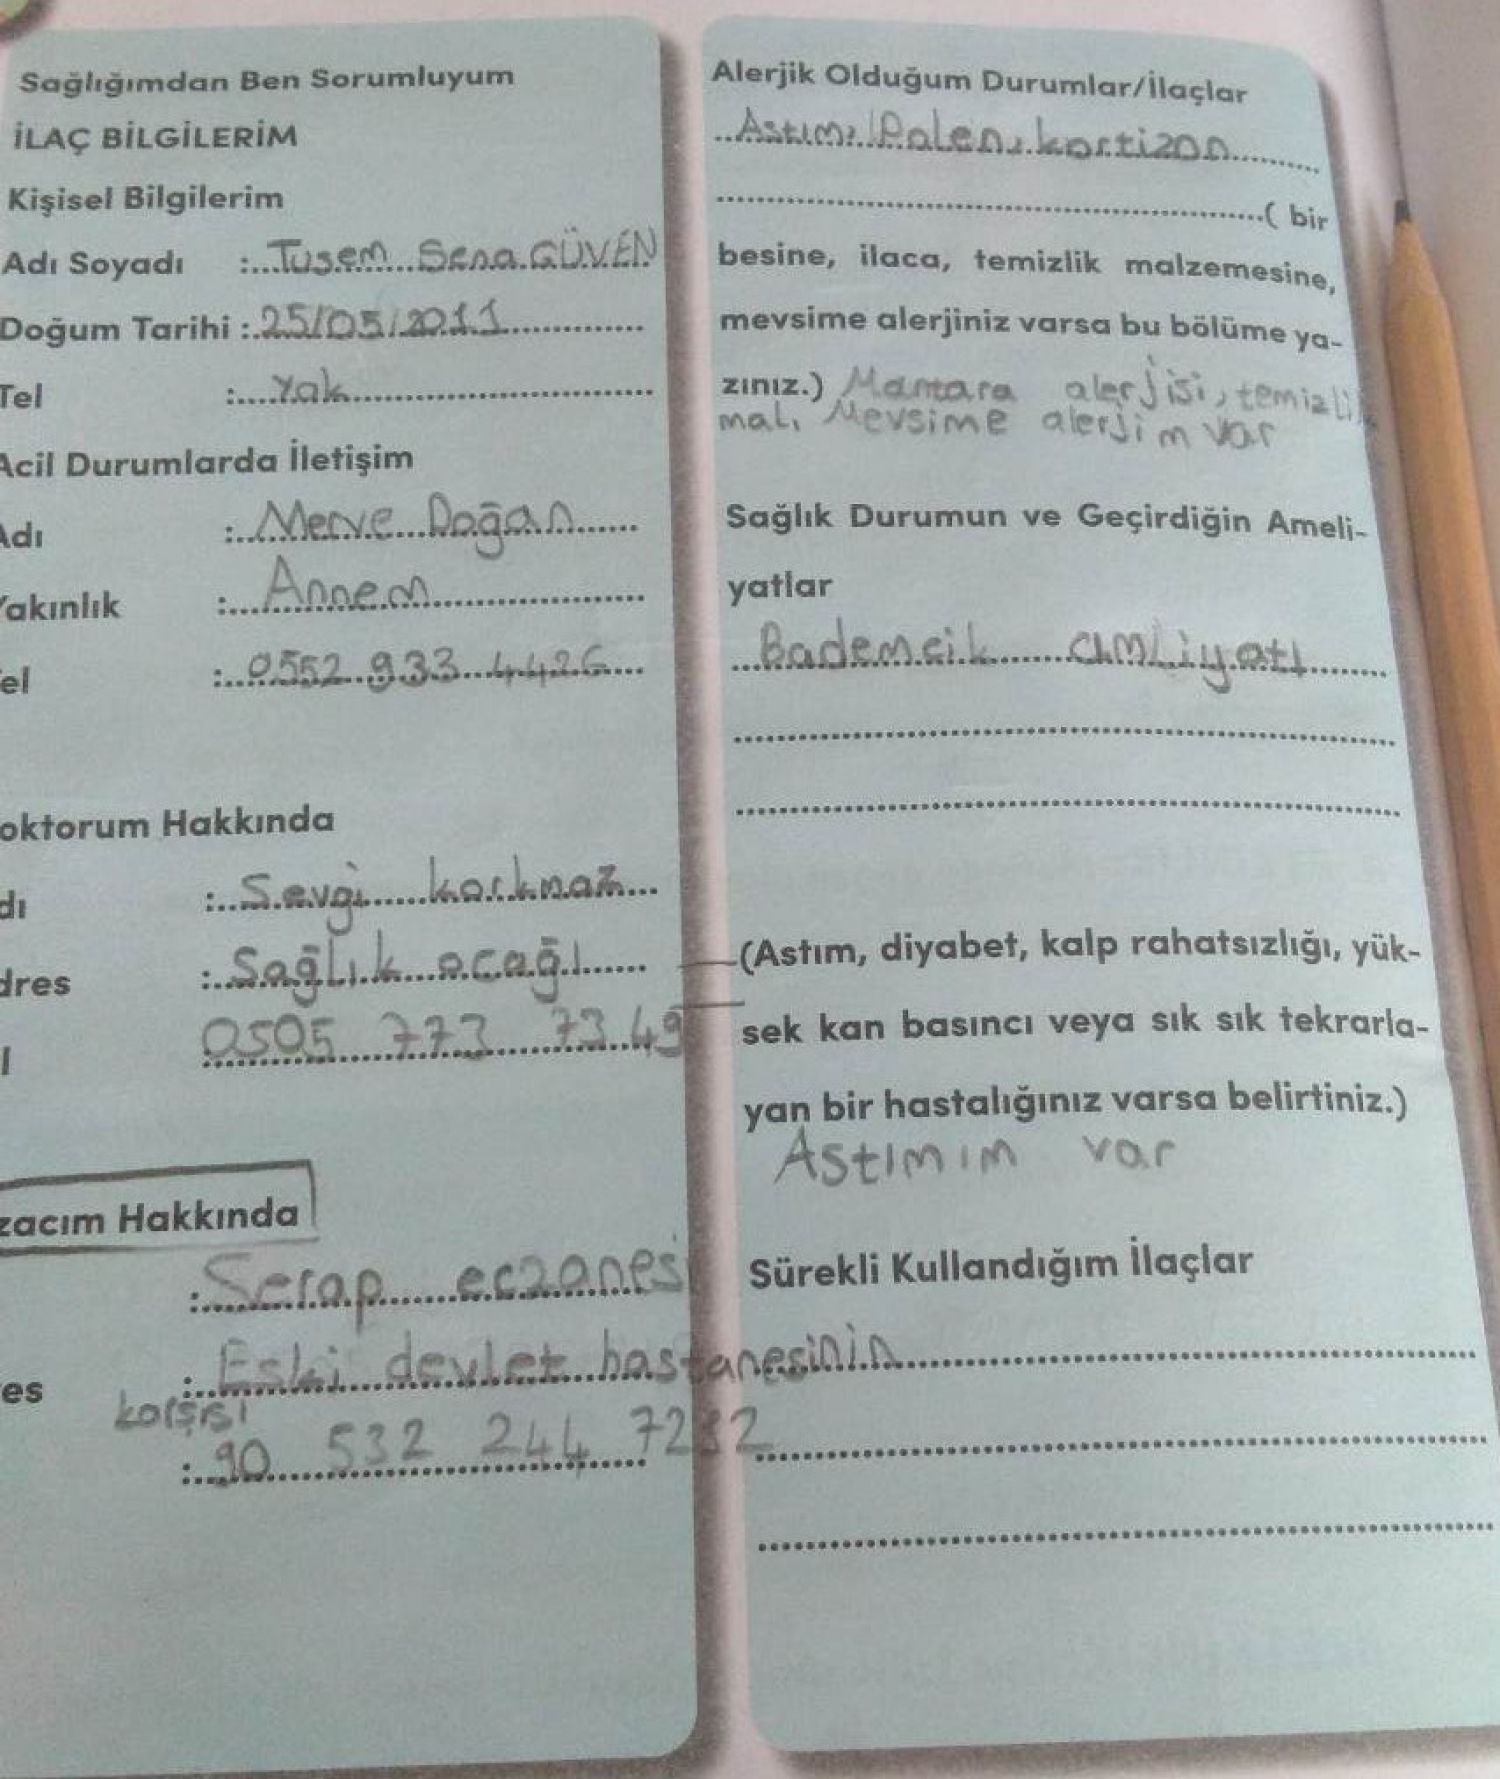 Sağlığımdan Ben Sorumluyum
İLAÇ BİLGİLERİM
Kişisel Bilgilerim
Adı Soyadı :...Tuğsem Sena GÜVEN
Doğum Tarihi : 25/05/2011
Tel : Yok
Acil Durumlarda İletişim
Adı : Merve Doğan
Yakınlık : Annem
el : 0552 933 4426
oktorum Hakkında
dı : Sevgi korkmaz
dres : Sağlık ocağı
l 0505 773 73 49
zacım Hakkında
: Serap eczanesi
es : Eski devlet hastanesinin
karşısı
: 90 532 244 7232
Alerjik Olduğum Durumlar/İlaçlar
Astım, Polen, kortizon
( bir
besine, ilaca, temizlik malzemesine,
mevsime alerjiniz varsa bu bölüme ya-
zınız.) Mantara alerjisi, temizlik
mal, Mevsime alerjim var
Sağlık Durumun ve Geçirdiğin Ameli-
yatlar
Bademcik amliyatı
(Astım, diyabet, kalp rahatsızlığı, yük-
sek kan basıncı veya sık sık tekrarla-
yan bir hastalığınız varsa belirtiniz.)
Astımım var
Sürekli Kullandığım İlaçlar